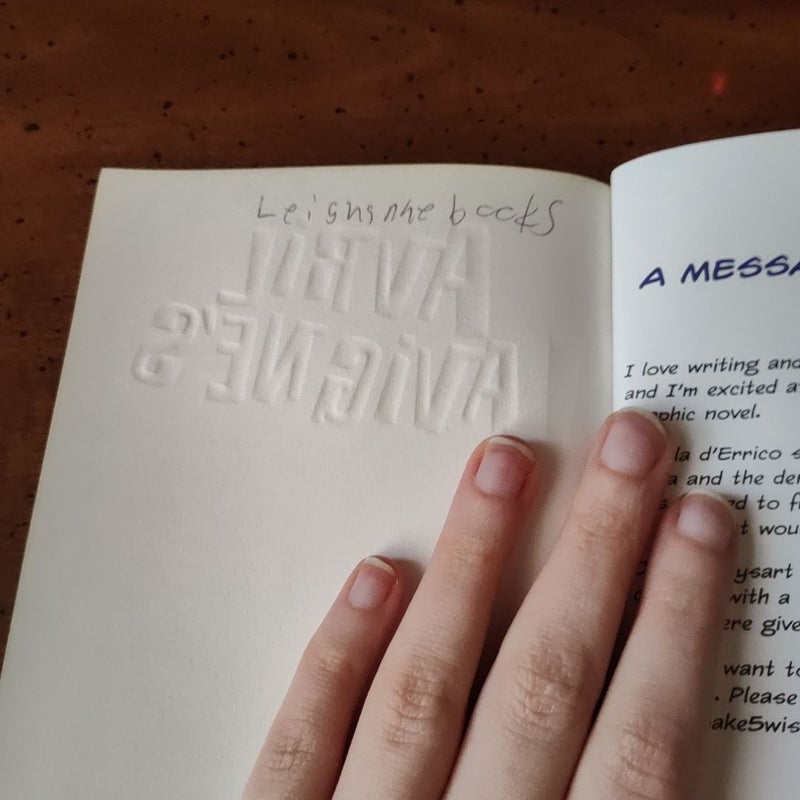 Leighanne books
AVRIL
LAVIGNE'S
A MESSA
I love writing and
and I'm excited a
phic novel.
d'Errico
and the
to
ysart
with a
give
want to
Please
ake5wis